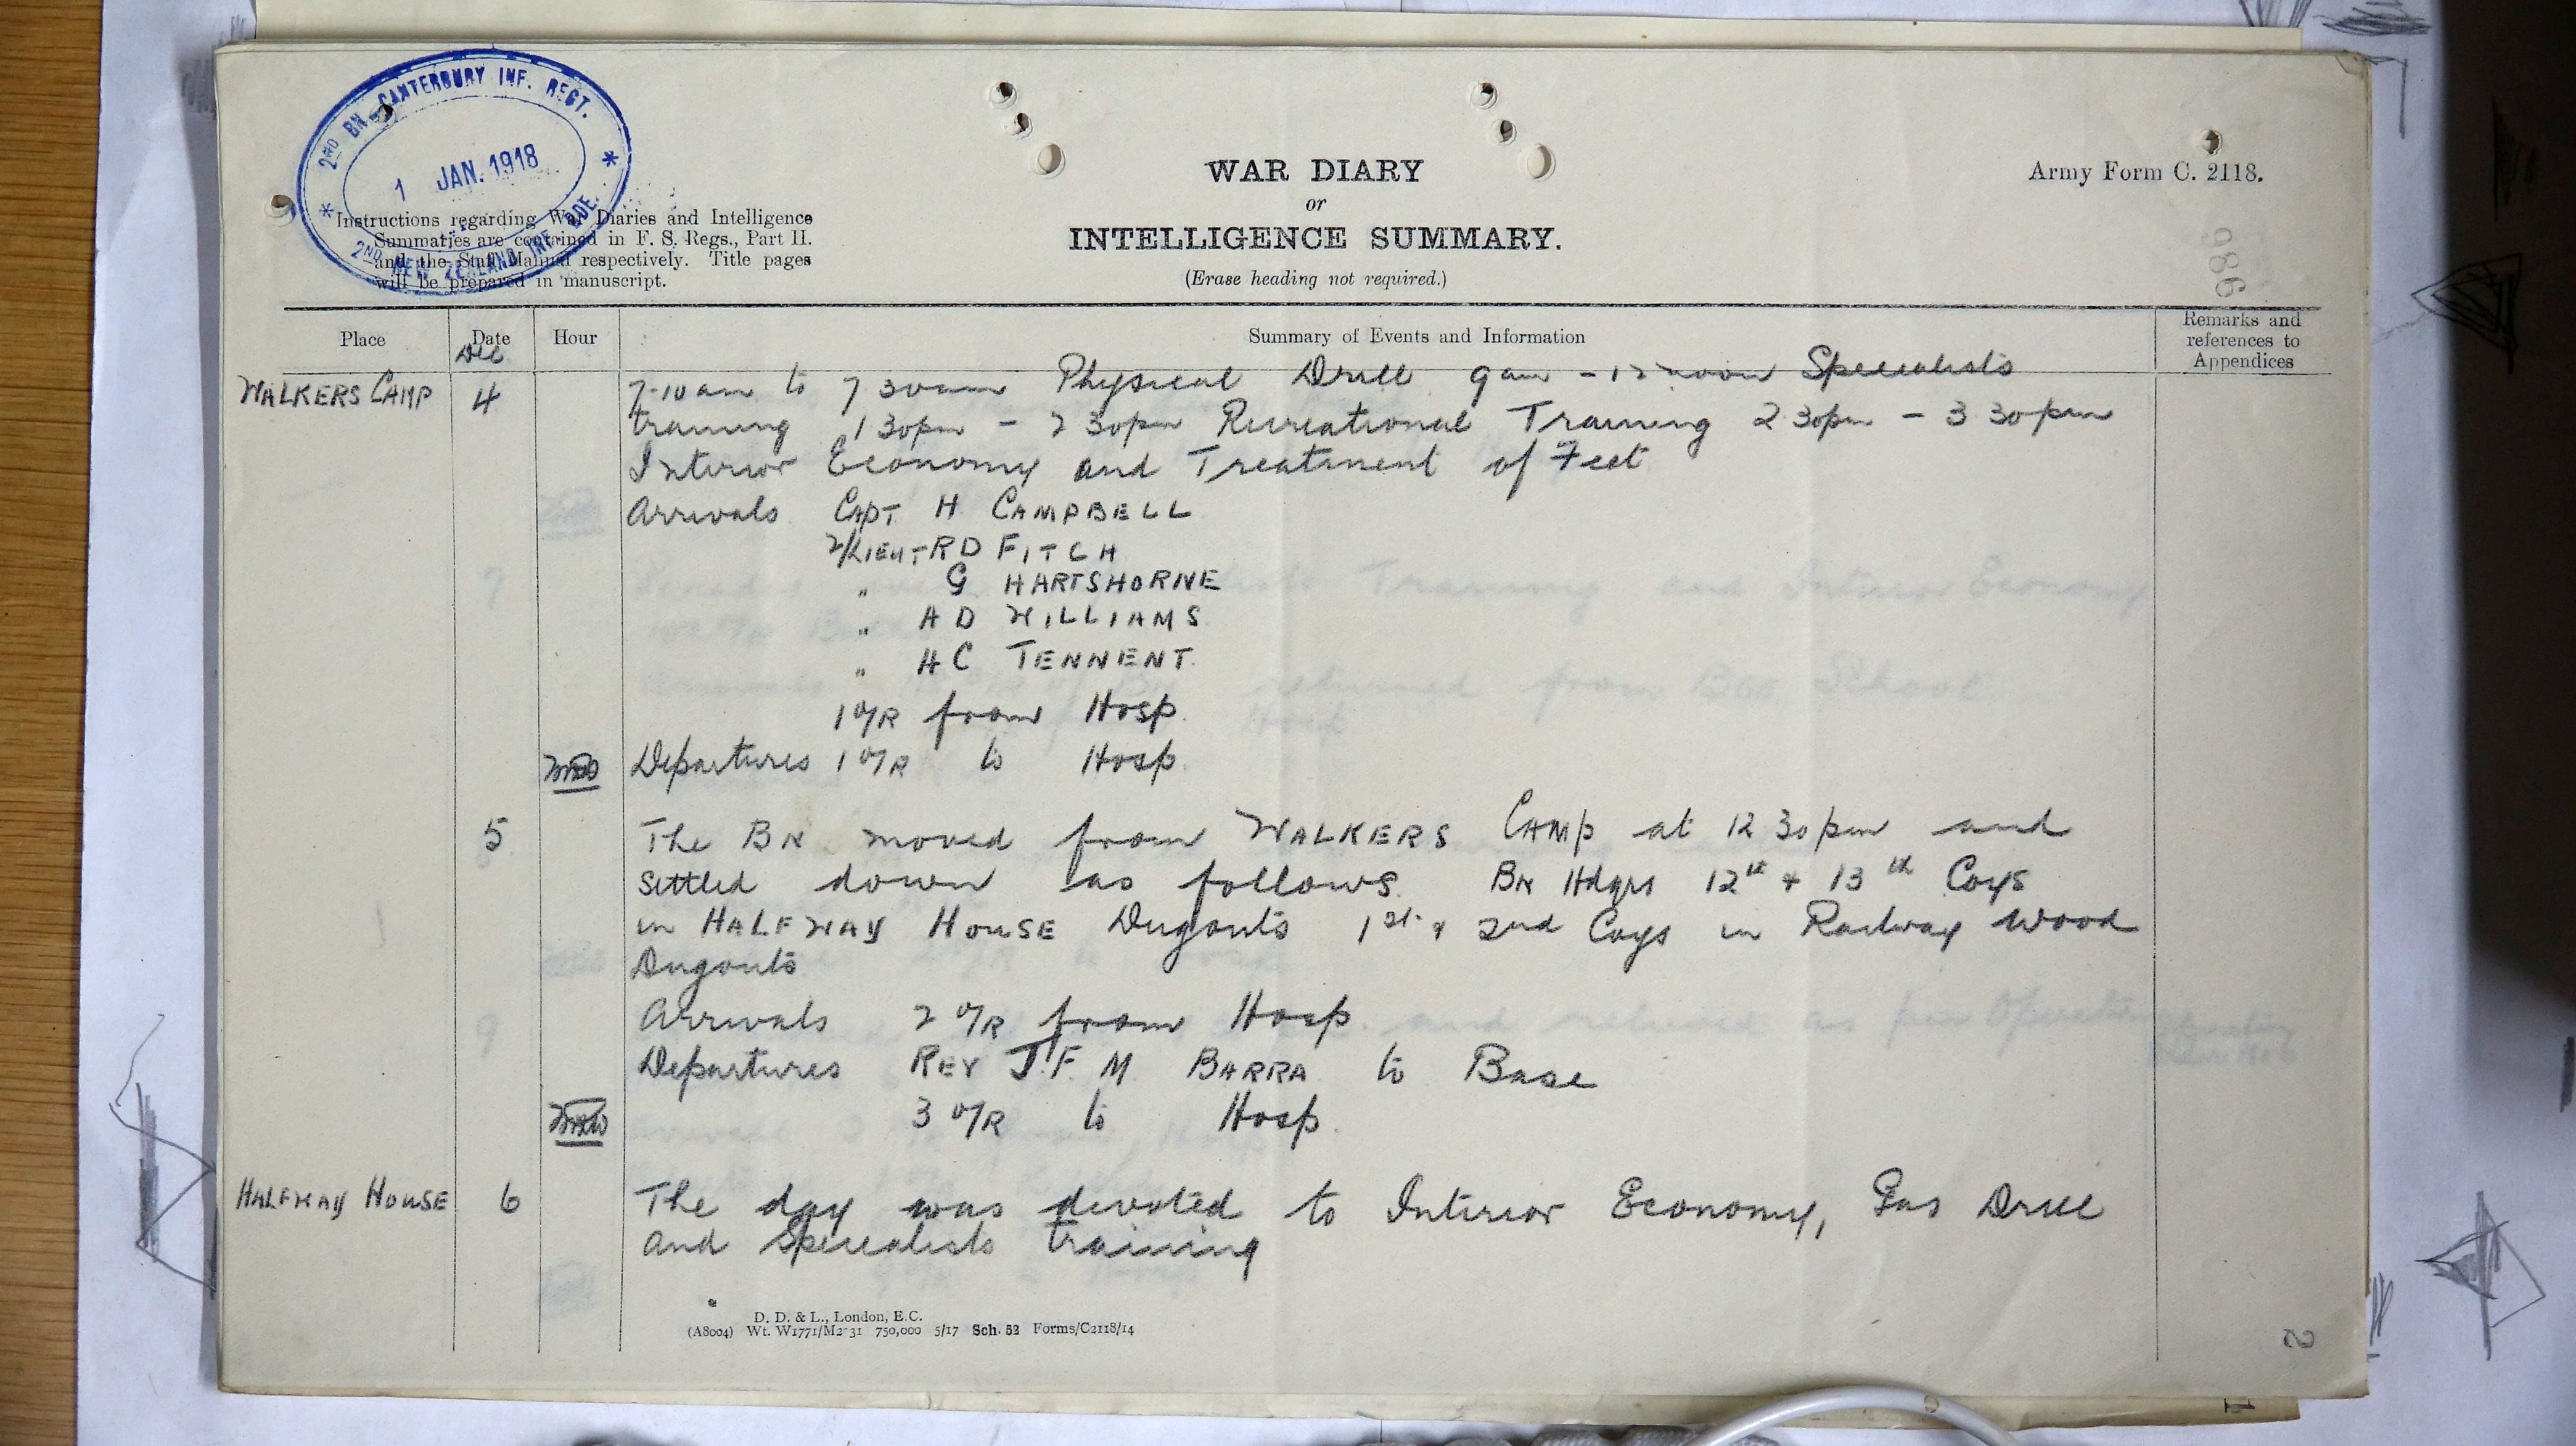 2ND BN. CANTERBURY INF. REGT.
1 JAN. 1918
2ND NEW ZEALAND INF. BDE.
Instructions regarding War Diaries and Intelligence
Summaries are contained in F. S. Regs., Part II.
and the Staff Manual respectively. Title pages
will be prepared in manuscript.
WAR DIARY
or
INTELLIGENCE SUMMARY.
(Erase heading not required.)
Army Form C. 2118.
986
Place Date Hour Summary of Events and Information Remarks and references to Appendices
Dec
WALKERS CAMP 4 7-10 am to 7 30 am Physical Drill 9 am - 12 noon Specialists
training 1 30pm - 2 30pm Recreational Training 2 30pm - 3 30pm
Interior Economy and Treatment of Feet
Arrivals CAPT H CAMPBELL
2/LIEUT R D FITCH
" G HARTSHORNE
" A D WILLIAMS
" H C TENNENT
1 O/R from Hosp.
Departures 1 O/R to Hosp.
5 The BN moved from WALKERS CAMP at 12 30pm and
settled down as follows. BN Hdqrs 12th & 13th Coys
in HALFWAY HOUSE Dugouts 1st & 2nd Coys in Railway Wood
Dugouts
Arrivals 2 O/R from Hosp.
Departures REV J.F. M BARRA to Base
3 O/R to Hosp.
HALFWAY HOUSE 6 The day was devoted to Interior Economy, Gas Drill
and Specialists training
D. D. & L., London, E.C.
(A8004) Wt. W1771/M2 31 750,000 5/17 Sch. 52 Forms/C2118/14
2